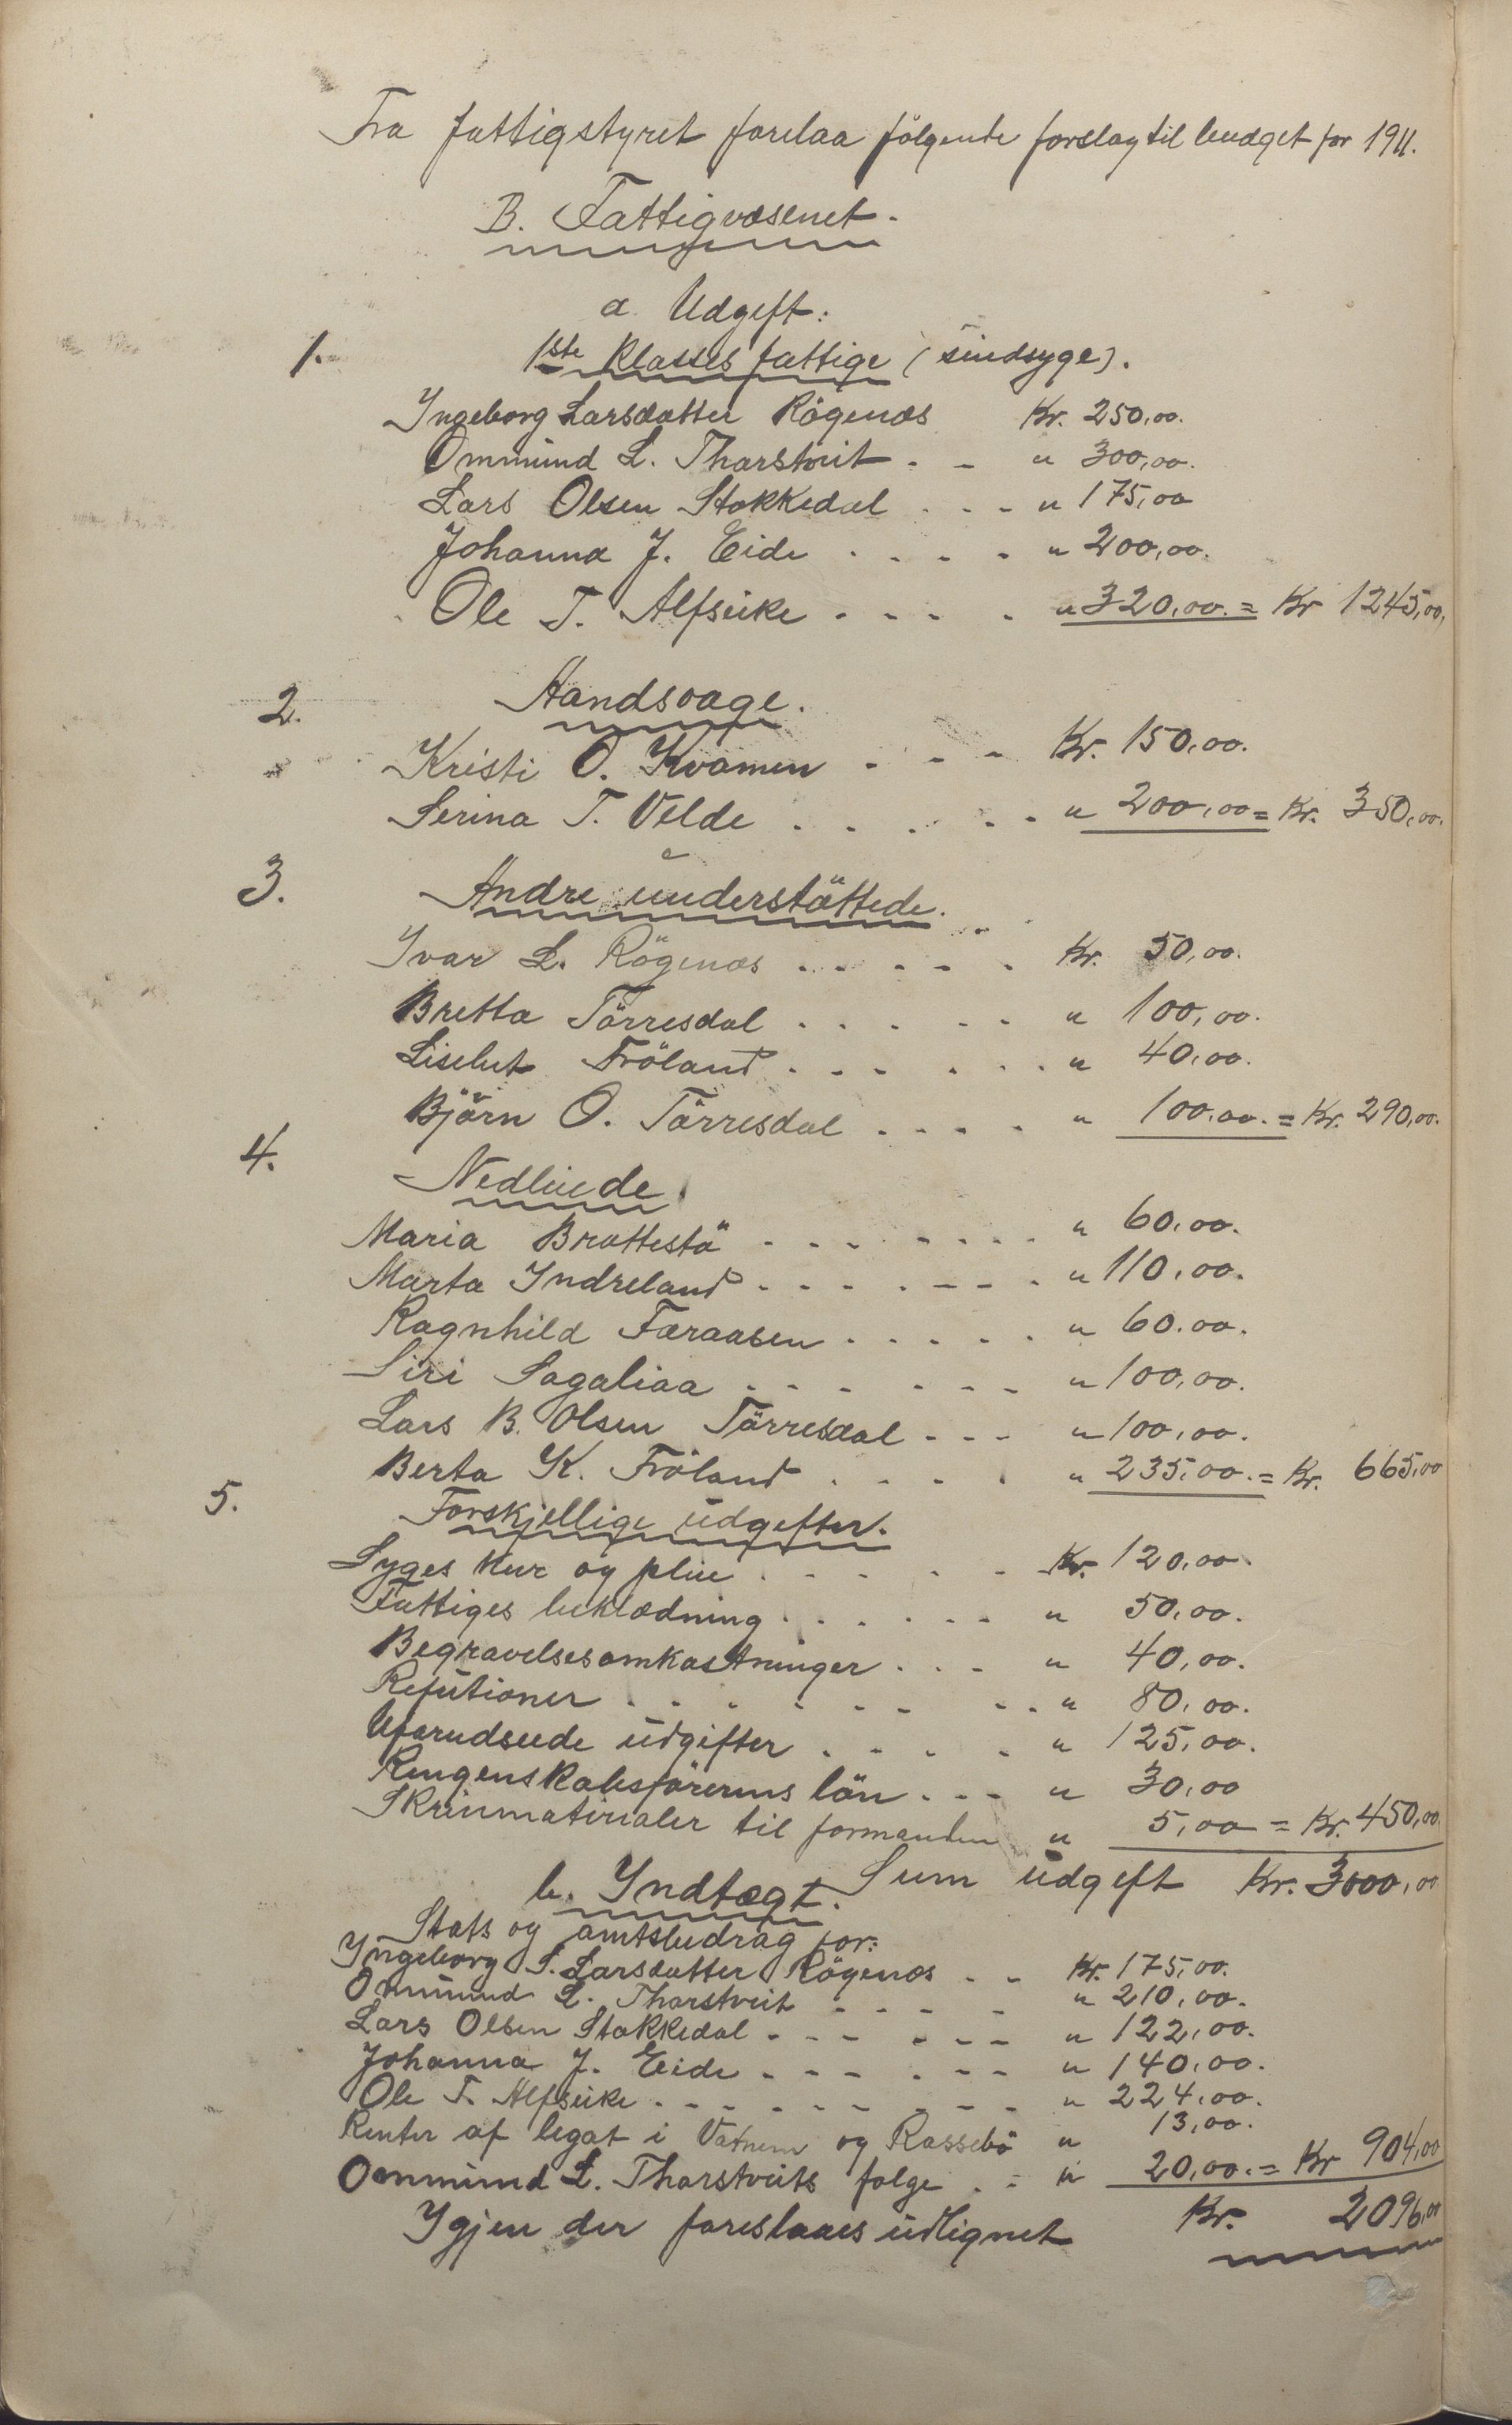 Fra fattigstyret forelaa fölgende forslag til budget for 1911.
B. Fattigvæsenet.
a. Udgift:
1. 1ste Klasses fattige (sindsyge).
Ingeborg Larsdatter Rögenæs Kr. 250,00.
Ommund L. Tharstveit . - " 300,00.
Lars Olsen Stokkedal . - - " 175,00
Johanna J. Eide . . . . " 200,00.
Ole T. Alfseike . - - - . " 320,00. = Kr 1245,00,
2. Aandsvage.
Kristi O. Kvamen - - - Kr. 150,00.
Serina T. Velde . . . . - . " 200,00 = Kr. 350,00.
3. Andre understöttede.
Ivar L. Rögenæs . . . . . . Kr. 50,00.
Bretta Törresdal . . . . . " 100,00.
Liselut Fröland . . . . . . " 40,00.
Björn O. Törresdal . . . . " 100.00. = Kr. 290,00.
4. Nedbiede.
Maria Brattestö . . . . . . . " 60,00.
Marta Indreland . . . . - - . " 110,00.
Ragnhild Faraasen . . . . . " 60.00.
Siri Sagaliaa . . . . - - - " 100,00.
Lars B. Olsen Törresdal - - - " 100,00.
Berta K. Fröland . . . . " 235,00. = Kr. 665,00
5. Forskjellige udgifter.
Syges kur og pleie . . . . . - Kr. 120,00.
Fattiges beklædning . . . . . - " 50,00.
Begravelsesomkostninger . . - " 40,00.
Refutioner . . . . . . - . " 80,00.
Uforudseede udgifter . . . . " 125,00.
Rengenskabsförerens lön . - - " 30,00
Skrivmaterialer til formanden " 5,00 = Kr. 450,00.
Sum udgift Kr. 3000,00
b. Indtægt.
Stats og amtsbidrag for:
Ingeborg S. Larsdatter Rögenæs . - Kr. 175,00.
Ommund L. Tharstveit . - - - - " 210,00.
Lars Olsen Stokkedal . - - . - - " 122,00.
Johanna J. Eide - - - . - - " 140,00.
Ole T. Alfseike . - - . - - - - " 224,00.
Renter af legat i Vatnem og Rassebö " 13,00.
Ommund L. Tharstveits folge . - " 20,00. = Kr 904,00
Igjen der foreslaaes udlignet Kr. 2096,00